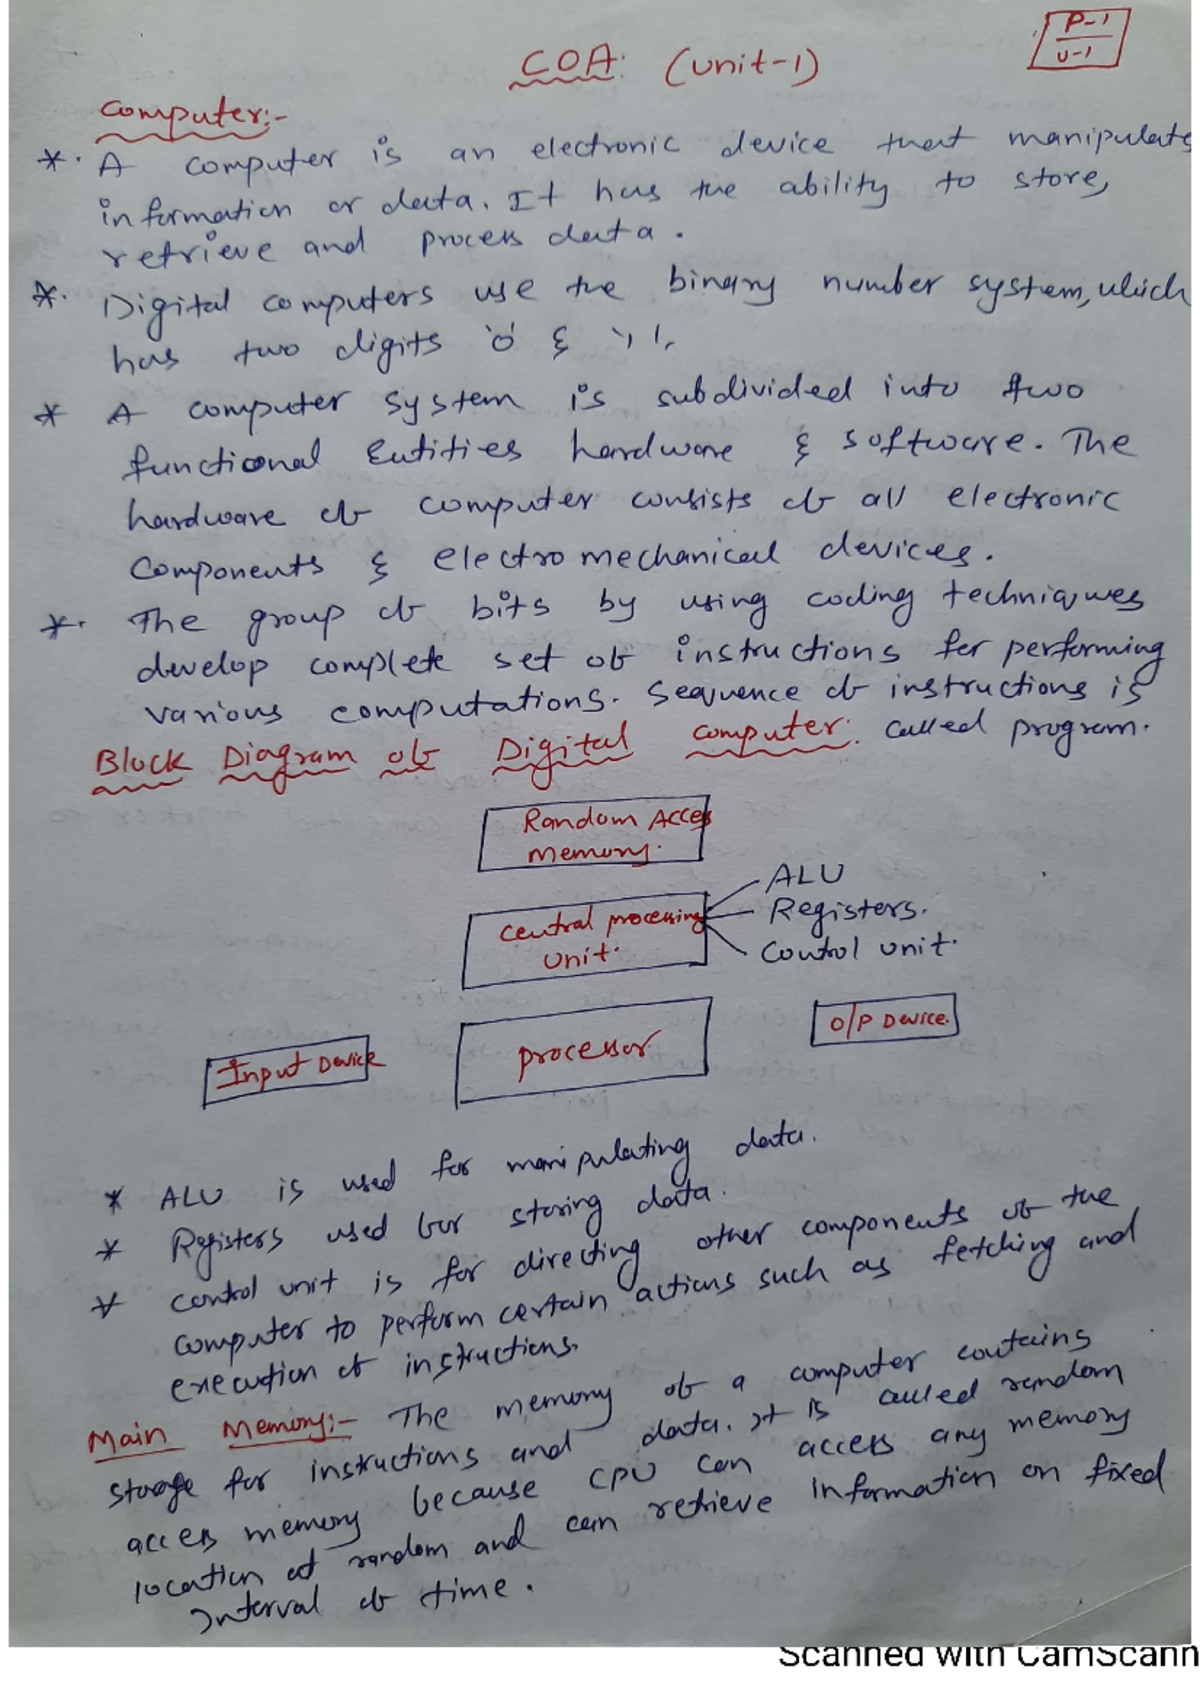 P-1
U-1
COA: (unit-1)
Computer:-
*. A computer is an electronic device that manipulates
information or data. It has the ability to store,
retrieve and process data.
*. Digital computers use the binary number system, which
has two digits '0' & '1'.
* A computer system is subdivided into two
functional Entities hardware & software. The
hardware of computer consists of all electronic
components & electromechanical devices.
*. The group of bits by using coding techniques
develop complete set of instructions for performing
various computations. Sequence of instructions is
called program.
Block Diagram of Digital computer:
Random Acces
memory.
Central processing
Unit.
ALU
Registers.
Control unit.
Input Device
processor
O/P Device.
* ALU is used for manipulating data.
* Registers used for storing data.
* control unit is for directing other components of the
computer to perform certain actions such as fetching and
execution of instructions.
Main Memory:- The memory of a computer contains
storage for instructions and data. It is called random
access memory because CPU can access any memory
location at random and can retrieve information on fixed
interval of time.
Scanned with CamScann